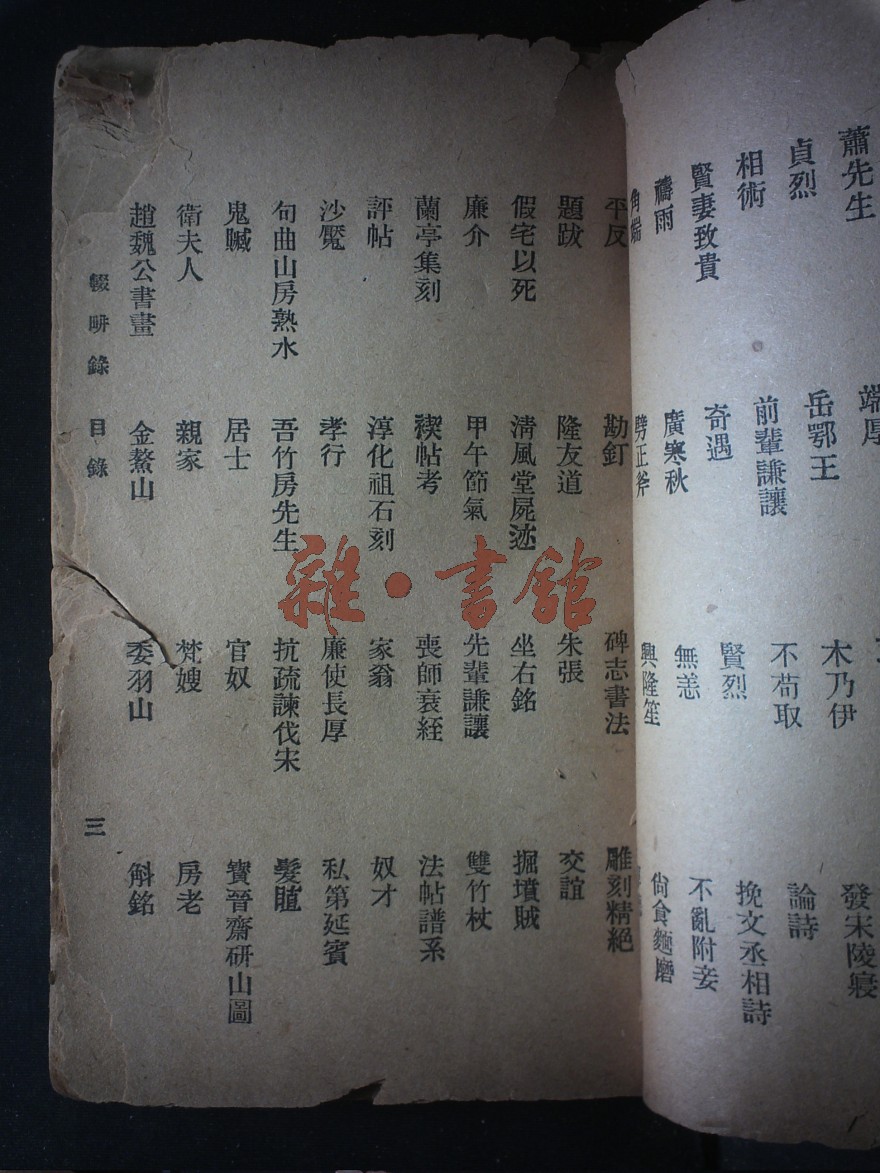 蕭先生 端厚 木乃伊 發宋陵寢
貞烈 岳鄂王 不苟取 論詩
相術 前輩謙讓 賢烈 挽文丞相詩
賢妻致貴 奇遇 無恙 不亂附妾
禱雨 廣寒秋 興隆笙 尙食麵磨
角端 劈正斧
平反 勘釘 碑志書法 雕刻精絕
題跋 隆友道 朱張 交誼
假宅以死 淸風堂屍迹 坐右銘 掘墳賊
廉介 甲午節氣 先輩謙讓 雙竹杖
蘭亭集刻 禊帖考 喪師衰絰 法帖譜系
評帖 淳化祖石刻 家翁 奴才
沙魘 孝行 廉使長厚 私第延賓
句曲山房熟水 吾竹房先生 抗疏諫伐宋 髮𣮈
鬼贓 居士 官奴 寶晉齋研山圖
衛夫人 親家 梵嫂 房老
趙魏公書畫 金鰲山 委羽山 斛銘
輟畊錄 目錄 三
雜·書館